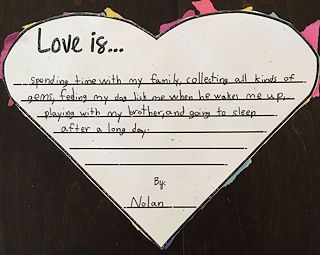 Love is...
spending time with my family, collecting all kinds of
gems, feeling my dog lick me when he wakes me up,
playing with my brother, and going to sleep
after a long day.
By:
Nolan